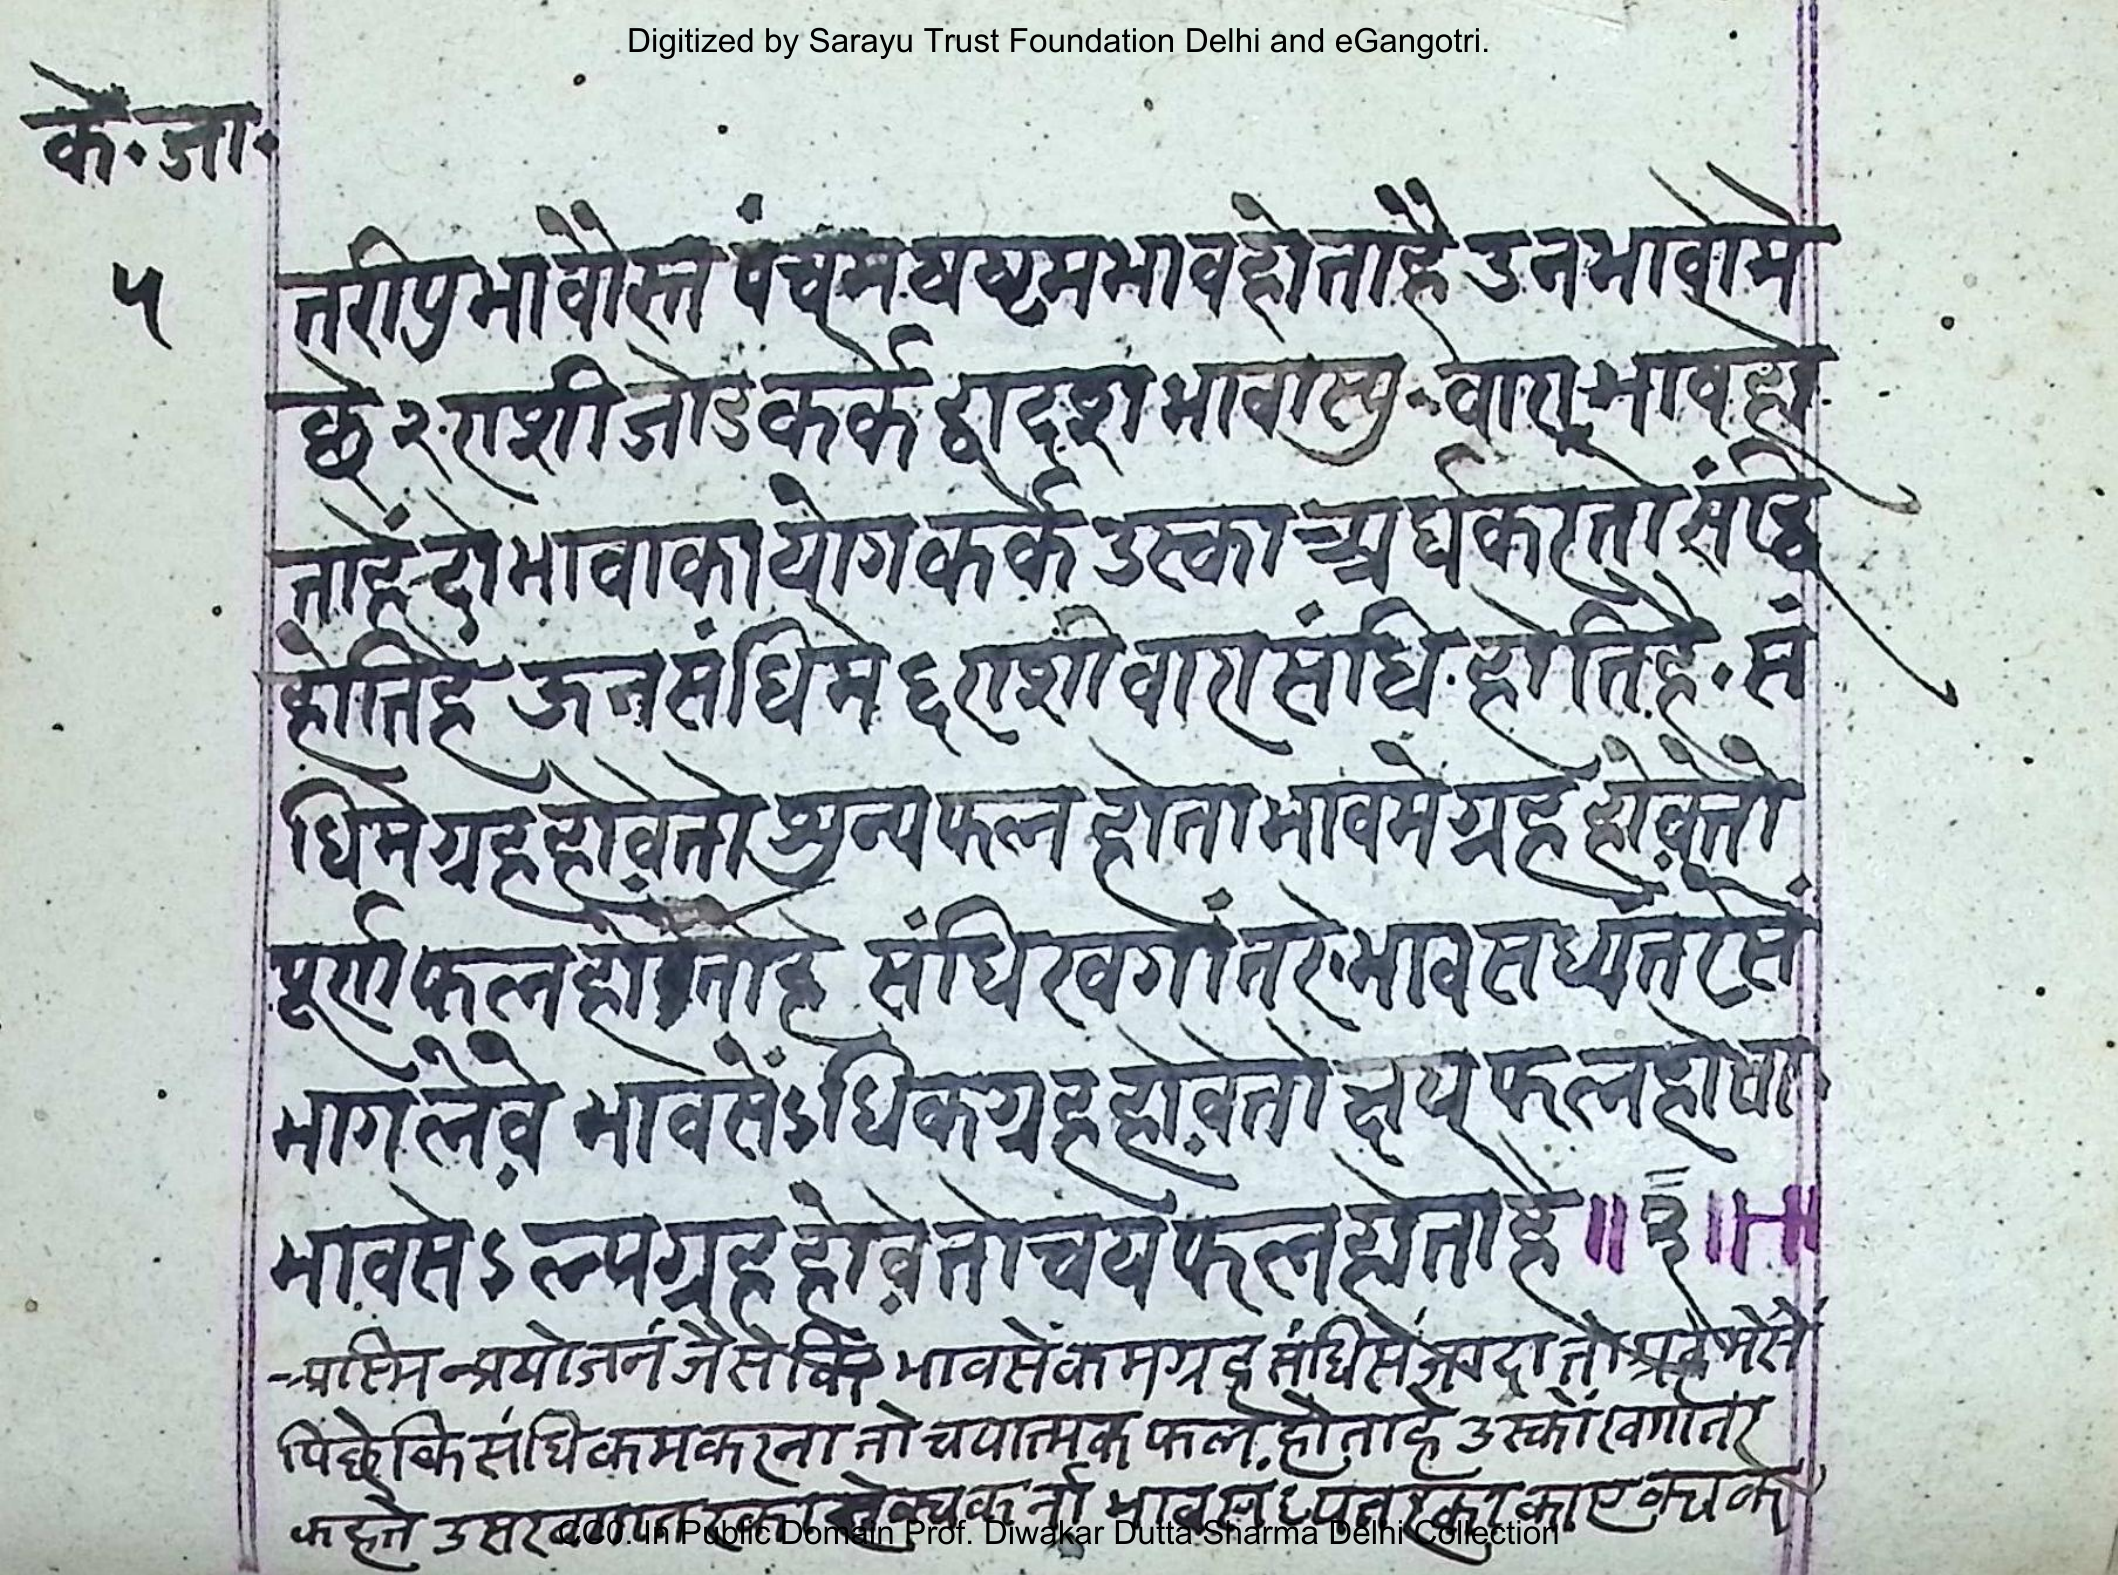 Digitized by Sarayu Trust Foundation Delhi and eGangotri.
के॰ जा॰
५
तरीपु भावौस्त पंचम षष्टम भाव होताहै उन भावोमे
छे २ राशी जोड कर्के द्वादश भावास्यु वारा भाव हो
ताहें दो भावाका योग कर्के उस्का अर्घ करतो संधि
होतिहे ऊन संधिमे ६ राशी वारा संधि होतिहै॰ सं
धिमे ग्रह होवेतो शुन्य फल होता भावमे ग्रह होवेतो
पूर्ण फल होताहे संधि खगांतरे भाव सध्यंतरसें
भागलेवे भावसेंऽधिक ग्रह होवेतो क्षय फल होवा
भावसेऽल्प ग्रह होवेतो चय फल होताहै ॥ ३ ॥
प्रयोजन जैसेकि भावसें कम ग्रह संधिसें ज्यादा तो
पिछेकि संधि कम करना तो चयात्मक फल होताहे उस्कों खगांतर
कहते उस CC0. In Public Domain Prof. Diwakar Dutta Sharma Delhi Collection